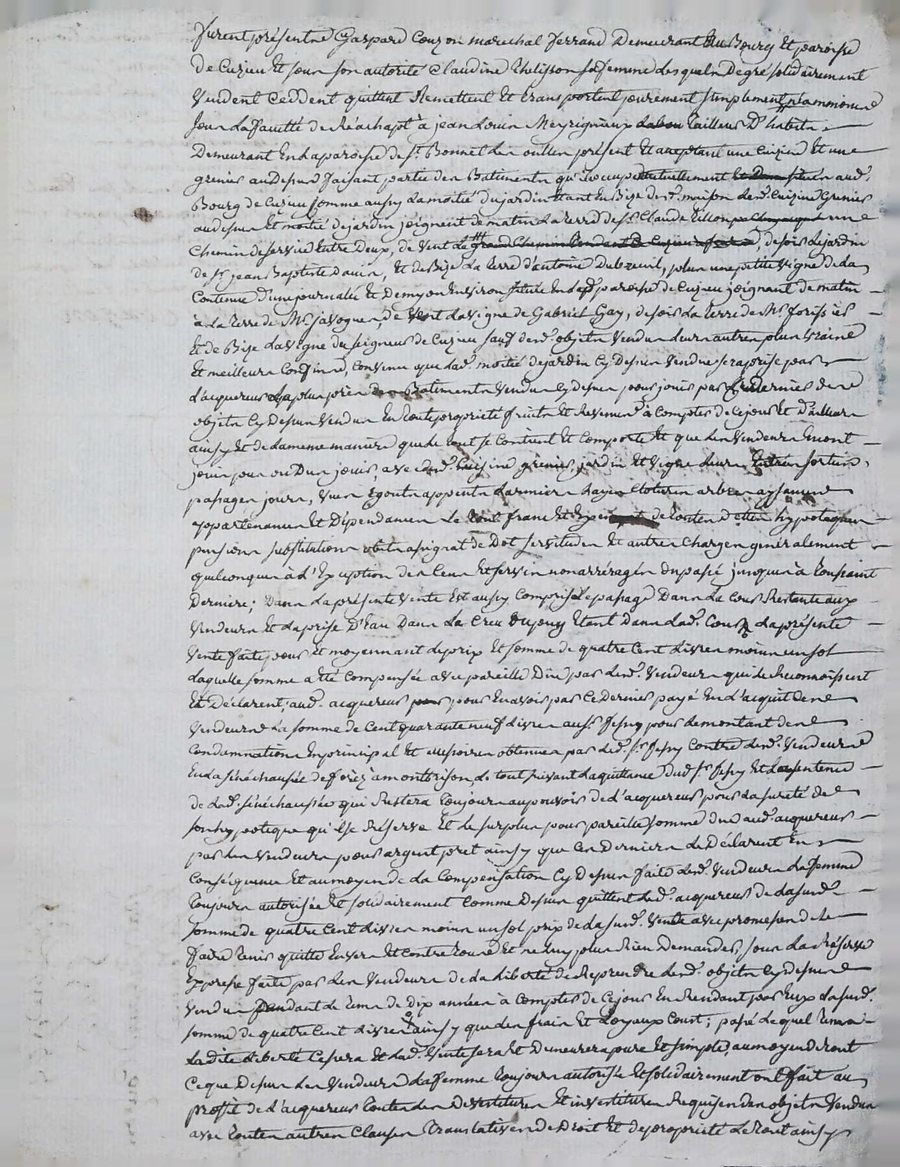 furent présents Gaspard Couzon marechal ferrand Demeurant au Bourg et paroisse
de Cuzieu et sous son autorité Claudine Thelisson sa femme lesquels Degré solidairement
Vendent Ceddent quittent Remettent Et transportent purement simplement néammoins
sous La faculté de Réachapt à jean Louis Meyrignieux tailleur D'habits
Demeurant En La paroisse de st. Bonnet Les oulles présent Et acceptant une Cuizine Et une
grenier au Dessus faisant partie des Batiments qu'ils occupent actuellement aud.
Bourg de Cuzieu Comme aussy La moitié du jardin Etant En Bize de lad. maison lesd. Cuizine Greniers
au dessus Et moitié de jardin joignent de matin La terre de sr. Claude Tillon une
Chemin de service Entre Deux, de Vent Le grand Chemin tendant de Cuzieu, de soir Le jardin
de sr. jean Baptiste, Et de Bize La terre d'antoine Dubreuil, plus une petite Vigne de La
Contenue D'une journalée Et Demy ou Environ située En lad. paroisse de Cuzieu joignant de matin
à La terre de Mr. javogues, de Vent La Vigne de Gabriel Gay, de soir La terre de Mr.
Et de Bize La Vigne du seigneur de Cuzieu sauf desd. objets Vendus Leurs autres plus Vrais
Et meilleurs Confins, Convenu que Lad. moitié de jardin Cy Dessus Vendue sera prise par
L'acquereur La plus près des Batiments Vendus Cy dessus pour jouir par Ce dernier des
objets Cy Dessus Vendus En toute propriété fruits Et Revenus à Compter de Ce jour Et D'ailleurs
ainsy Et de La meme maniere que Le tout se Contient Et Comporte Et que Les Vendeurs En ont
joui pu ou Du jouir, avec desd. Cuizine greniers, jardin Et Vigne Leurs Entrées sorties,
passages jours, Vues Egouts appents Larmiers hayes Clotures arbres aysances
appartenances Et Dépendances Le tout franc Et Exempt de toutes Dettes hypoteques
pensions substitutions assignat de Dot servitudes Et autres Charges generalement
quelconques à L'Exception des Cens Et servis non arréragés Du passé jusques à toussaint
Derniere; Dans La présente Vente Est aussy Comprise Le passage Dans La Cour Restante aux
Vendeurs Et La prise D'Eau Dans La Creu Du puis Etant Dans Lad. Cour La présente
Vente faite pour Et moyennant Le prix Et somme de quatre Cent Livres moins un sol
Laquelle somme a été Compensée avec pareille Due par Lesd. Vendeurs qui Le Reconnoissent
Et Déclarent, aud. acquereur pour En avoir par Ce Dernier payé En L'acquit des
Vendeurs La somme de Cent quarante neuf Livres au sr. jesny pour Le montant des
Condamnations En principal Et accessoires obtenues par led. sr. jesny Contre Lesd. Vendeurs
En La sénéchaussée de forez à montbrison, Le tout suivant La quittance Dud. sr. jesny Et La sentence
de Lad. sénéchaussée qui Restera toujours au pouvoir de L'acquereur pour La sureté de
son hypoteque qu'il se Réserve Et Le surplus pour pareille somme due aud. acquereur
par Les Vendeurs pour argent pret ainsy que Ces Derniers Le Déclarent En
Conséquence Et au moyen de La Compensation Cy Dessus faite Lesd. Vendeurs La femme
toujours autorisée Et solidairement Comme Dessus quittent Led. acquereur de Lasusd.
somme de quatre Cent Livres moins un sol prix de La susd. Vente avec promesse de Le
faire tenir quitte Envers Et Contre tous Et ne Luy plus Rien Demander, sous La Réserve
Expresse faite par Les Vendeurs de La Liberté de Reprendre Lesd. objets Cy dessus
Vendus Pendant Le tems de Dix années à Compter de Ce jour En Rendant par Eux La susd.
somme de quatre Cent Livres ainsy que Les frais Et Loyaux Cous; passé Lequel tems
La dite Liberté Cessera Et Lad. Vente sera Et Demeurera pure Et simple, au moyen de tout
Ce que Dessus Les Vendeurs La femme toujours autorisée Et solidairement ont fait au
proffit de L'acquereur toutes Les Devestitures Et investitures Requises des objets Vendus
avec toutes autres Clauses translatives de Droit Et de propriété Le tout ainsy